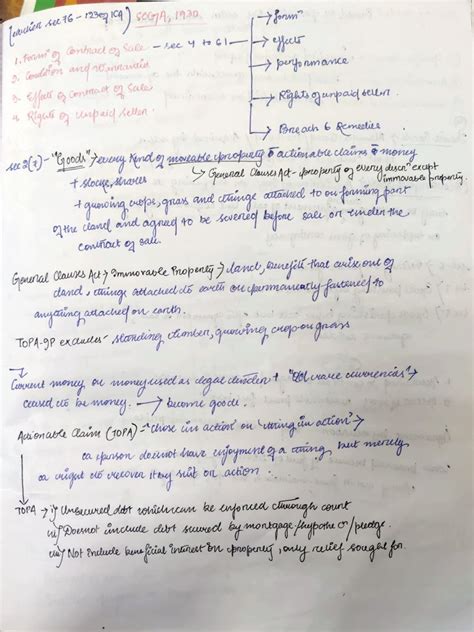 (earlier sec 76 - 123 of ICA) SOGA, 1930.
1. Form of contract of sale - sec 4 to 61
→ formⁿ
2. Condition and warranties
→ effects
3. Effects of Contract of Sale
→ performance
4. Rights of unpaid seller
→ Rights of unpaid seller
→ Breach & Remedies
sec 2(7) - "Goods" → every kind of moveable property actionable claims money
→ General Clauses Act - property of every descⁿ except immovable property.
+ stocks, shares
+ growing crops, grass and things attached to or forming part
of the land and agreed to be severed before sale or under the
contract of sale.
General Clauses Act → Immovable Property → land, benefit that arise out of
land, things attached to earth or permanently fastened to
anything attached on earth.
TOPA - IP excludes - standing timber, growing crop or grass
Current money or money used as legal tender + "Old rare currencies" →
ceased to be money. → become goods.
Actionable Claim (TOPA) - "chose in action" or "thing in action" →
a person does not have enjoyment of a thing, but merely
a right to recover it by suit or action.
TOPA → i) Unsecured debt which can be enforced through court
ii) Does not include debt secured by mortgage / hypothecⁿ / pledge.
iii) Not Include beneficial interest on property, only relief sought for.